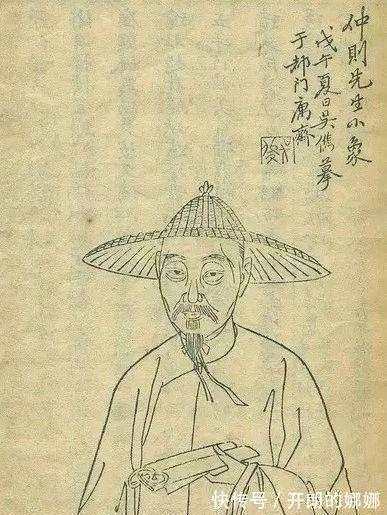 仲則先生小象
戊午夏日吴儁摹
于都门寓斋
快传号／开朗的娜娜